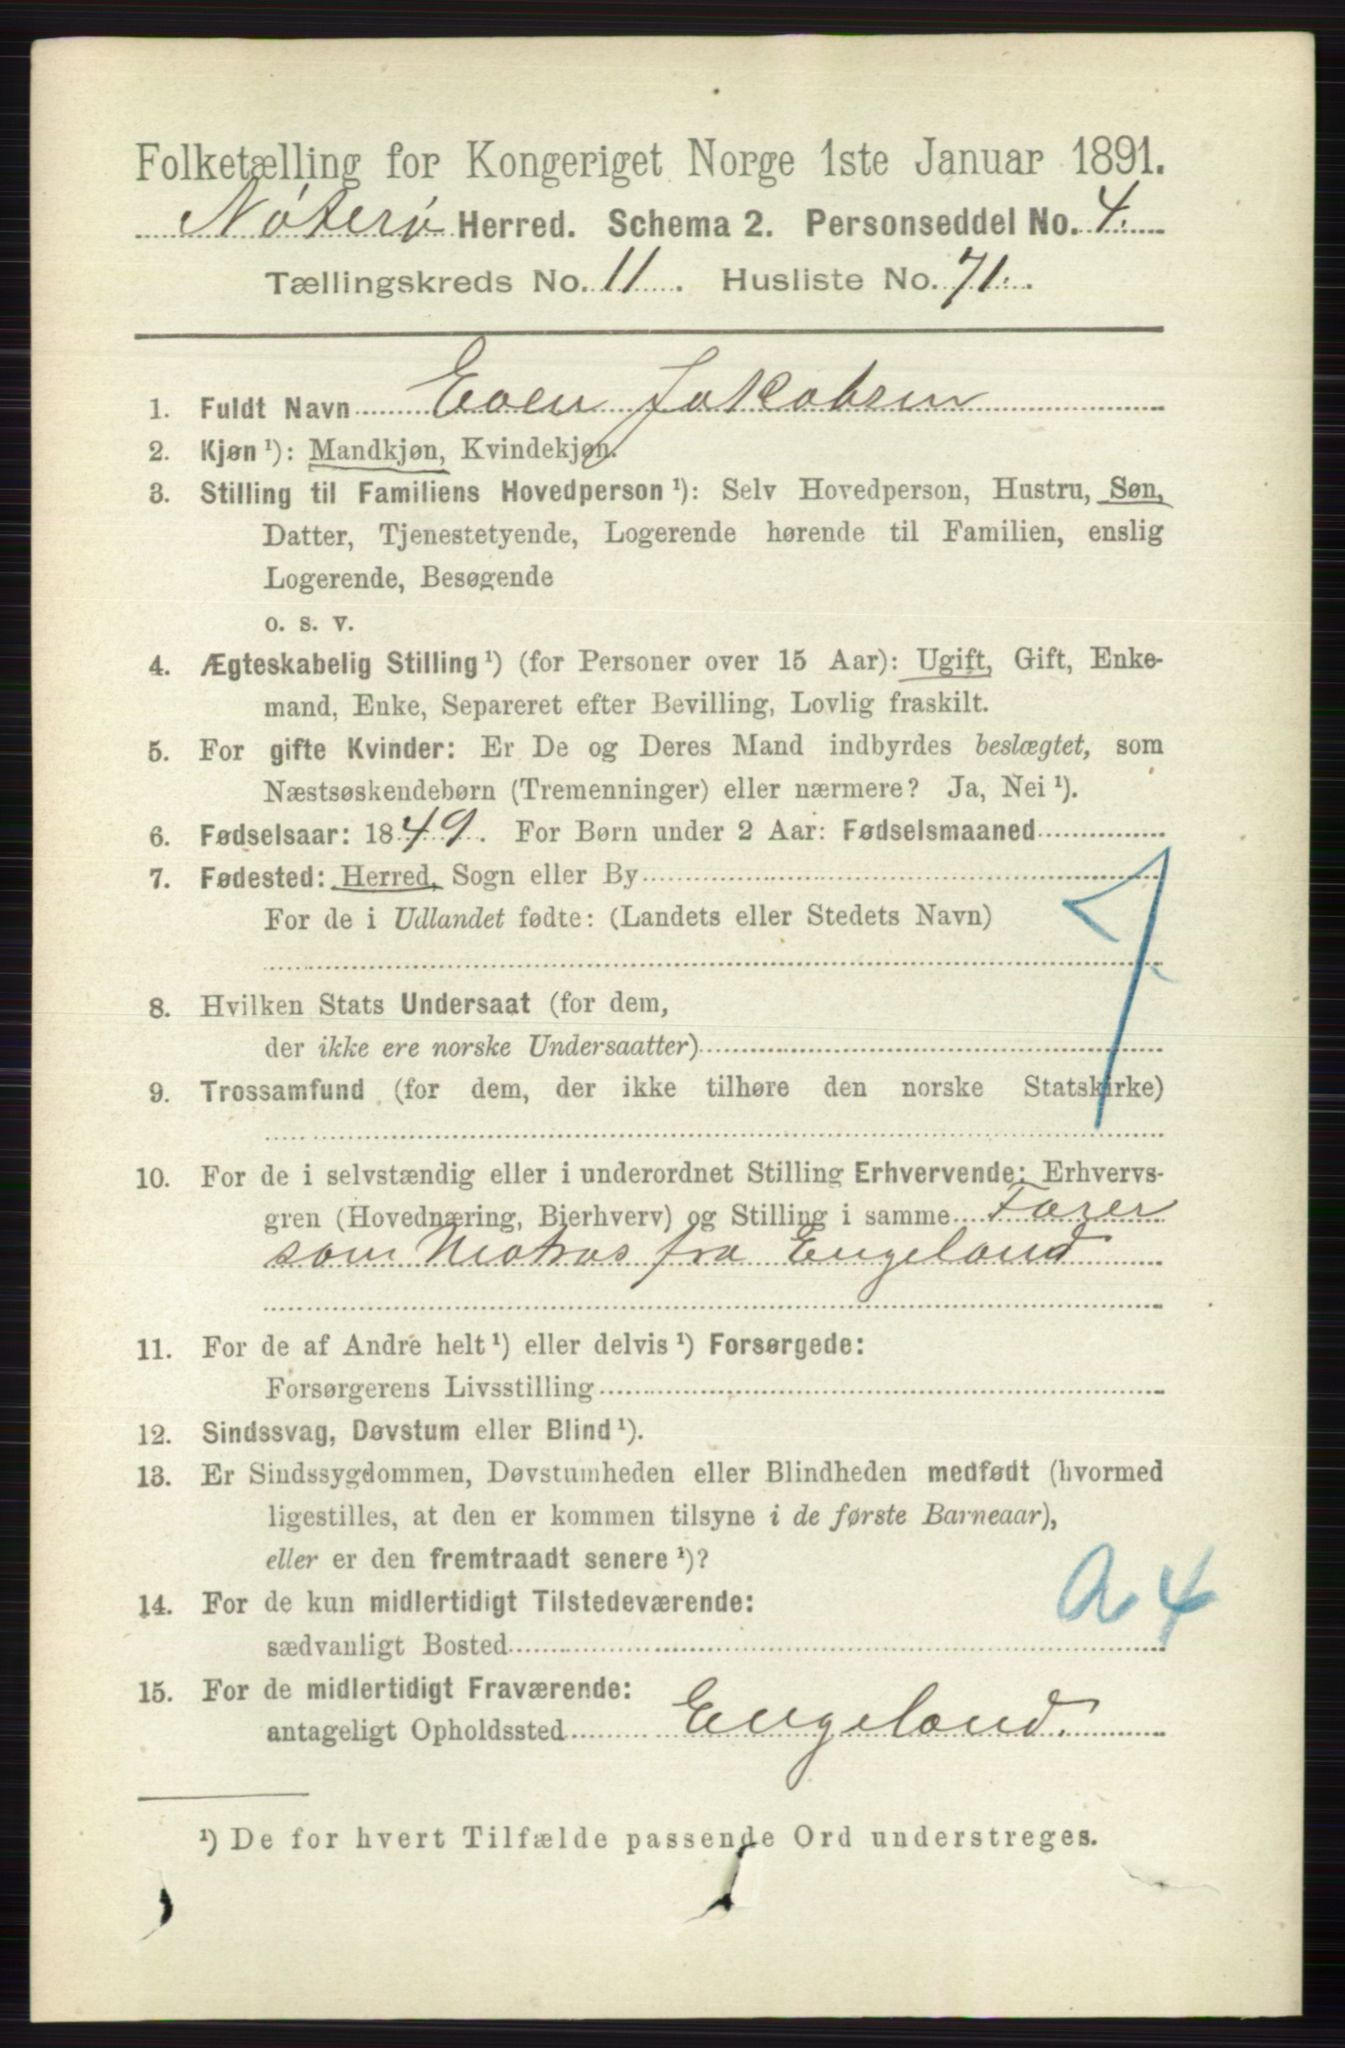 Folketælling for Kongeriget Norge 1ste Januar 1891.
Nøterø Herred. Schema 2. Personseddel No. 4.
Tællingskreds No. 11. Husliste No. 71.
1. Fuldt Navn Even Jakobsen
2. Kjøn ¹): Mandkjøn, Kvindekjøn.
3. Stilling til Familiens Hovedperson ¹): Selv Hovedperson, Hustru, Søn,
Datter, Tjenestetyende, Logerende hørende til Familien, enslig
Logerende, Besøgende
o. s. v.
4. Ægteskabelig Stilling ¹) (for Personer over 15 Aar): Ugift, Gift, Enke-
mand, Enke, Separeret efter Bevilling, Lovlig fraskilt.
5. For gifte Kvinder: Er De og Deres Mand indbyrdes beslægtet, som
Næstsøskendebørn (Tremenninger) eller nærmere? Ja, Nei ¹).
6. Fødselsaar: 1849. For Børn under 2 Aar: Fødselsmaaned
7. Fødested: Herred, Sogn eller By
For de i Udlandet fødte: (Landets eller Stedets Navn)
8. Hvilken Stats Undersaat (for dem,
der ikke ere norske Undersaatter)
9. Trossamfund (for dem, der ikke tilhøre den norske Statskirke)
10. For de i selvstændig eller i underordnet Stilling Erhvervende: Erhvervs-
gren (Hovednæring, Bierhverv) og Stilling i samme Farer
som Matros fra Engeland
11. For de af Andre helt ¹) eller delvis ¹) Forsørgede:
Forsørgerens Livsstilling
12. Sindssvag, Døvstum eller Blind ¹).
13. Er Sindssygdommen, Døvstumheden eller Blindheden medfødt (hvormed
ligestilles, at den er kommen tilsyne i de første Barneaar),
eller er den fremtraadt senere ¹)?
a 4
14. For de kun midlertidigt Tilstedeværende:
sædvanligt Bosted
15. For de midlertidigt Fraværende:
antageligt Opholdssted Engeland.
¹) De for hvert Tilfælde passende Ord understreges.